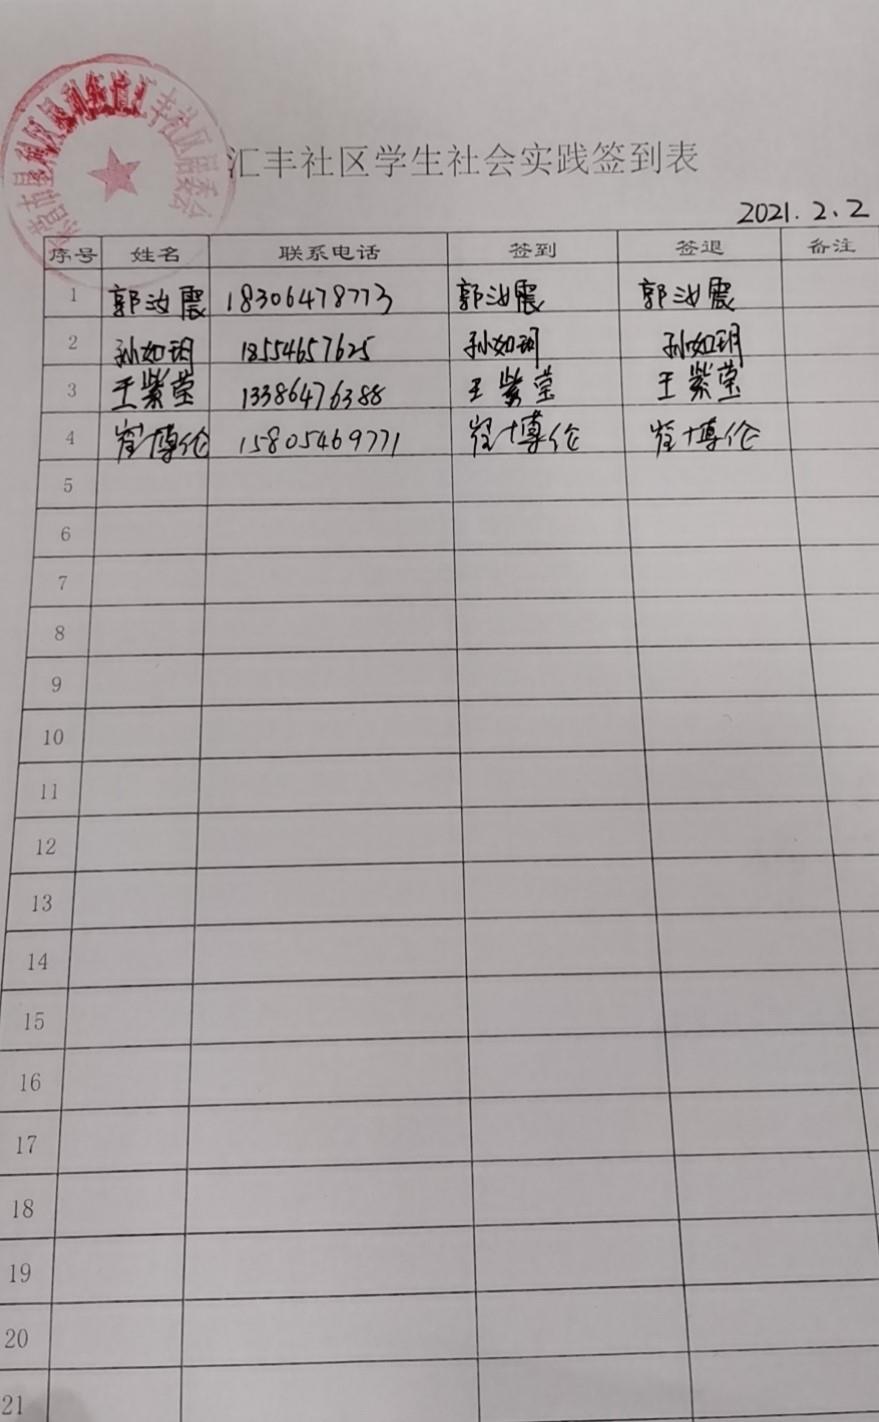 汇丰社区学生社会实践签到表
2021.2.2
序号 姓名 联系电话 签到 签退 备注
1 郭汝震 18306478773 郭汝震 郭汝震
2 孙如玥 18554657625 孙如玥 孙如玥
3 王紫莹 13386476388 王紫莹 王紫莹
4 崔博伦 15805469771 崔博伦 崔博伦
5
6
7
8
9
10
11
12
13
14
15
16
17
18
19
20
21